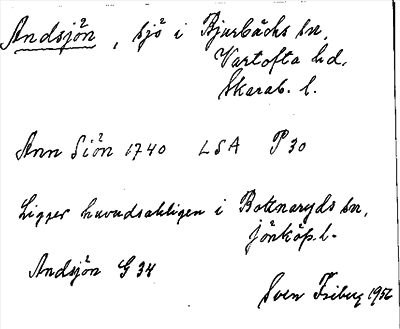 Andsjön, sjö i Bjurbäcks sn,
Vartofta hd,
Skarab. l.
Ann Siön 1740 LSA P 30
Ligger huvudsakligen i Bottnaryds sn,
Jönköp. l.
Andsjön G 34
Sven Friberg 1956